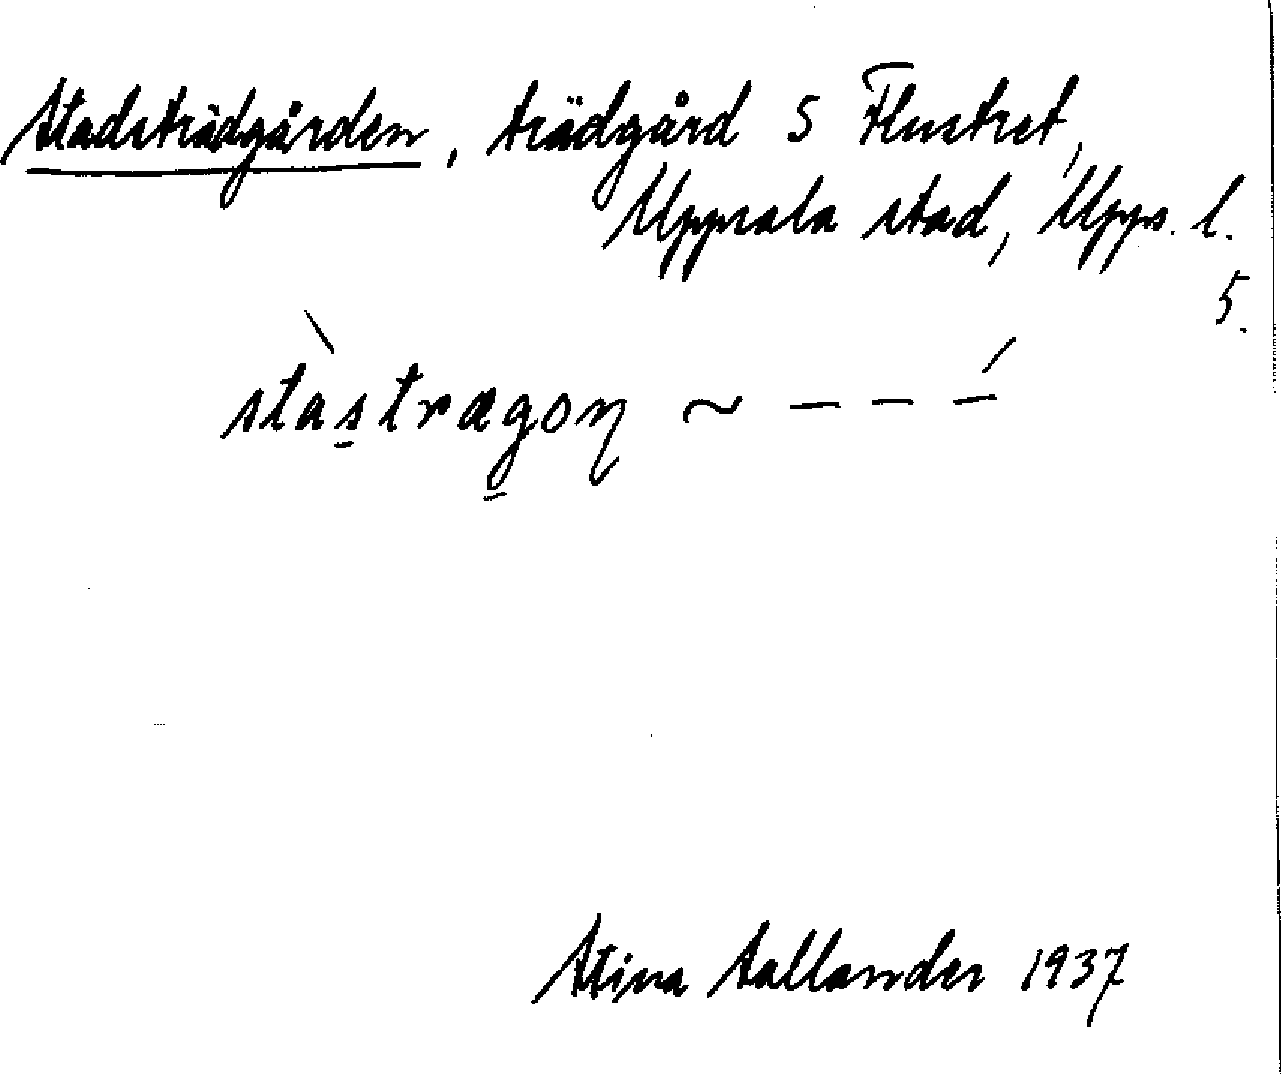 Stadsträdgården, trädgård S Flustret,
Uppsala stad, Upps. l.
5.
stàs̲træg̲oŋ ~ – – –́
Stina Sallander 1937